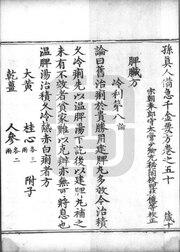 孫真人備急千金要方卷之五十 歲十
宗朝奉郎守太常少卿充秘閣校理林億等校正
脾臟方
冷利第八論
論曰舊治痢於貴勝用建脾丸多效今治積
久冷痢先以溫脾湯下訖後以建脾丸補之
未有不效者貧家難以克辦亦無可將息也
溫脾湯治積久冷熱赤白痢者方
大黃 桂心 附子
乾薑 人參